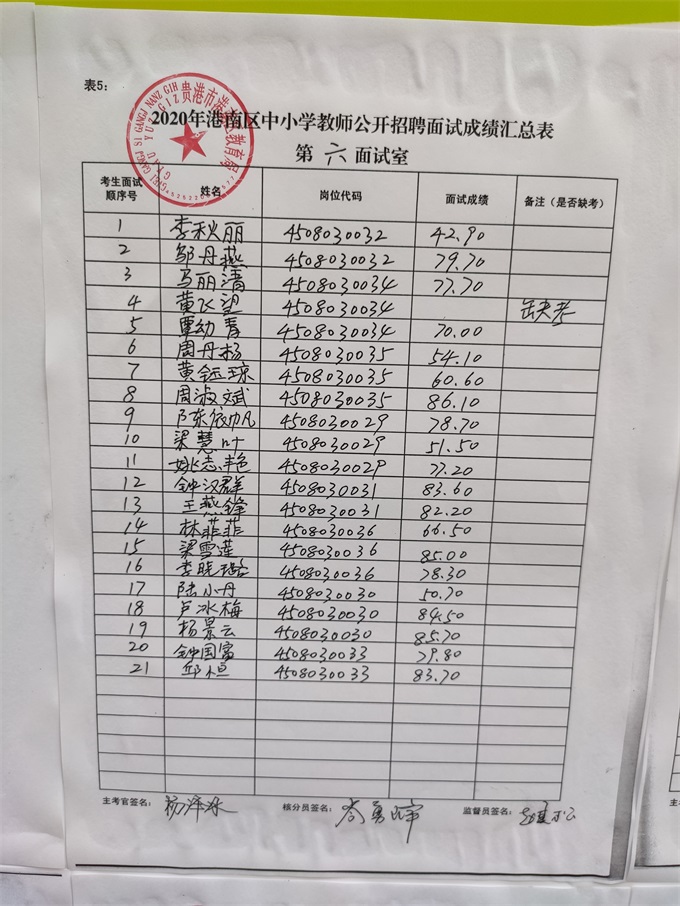 表5：
2020年港南区中小学教师公开招聘面试成绩汇总表
第 六 面试室
考生面试顺序号 姓名 岗位代码 面试成绩 备注（是否缺考）
1 李秋丽 4508030032 42.90
2 邹丹燕 4508030032 79.70
3 马丽清 4508030034 77.70
4 黄飞望 4508030034 缺考
5 覃幼青 4508030034 70.00
6 周丹杨 4508030035 54.10
7 黄钰琼 4508030035 60.60
8 周淑斌 4508030035 86.10
9 4508030029 78.70
10 梁慧叶 4508030029 51.50
11 姚志艳 4508030029 77.20
12 钟汉群 4508030031 83.60
13 王燕锋 4508030031 82.20
14 林菲菲 4508030036 66.50
15 梁雪莲 4508030036 85.00
16 李晓 4508030036 78.30
17 陆小丹 4508030030 50.70
18 卢冰梅 4508030030 84.50
19 杨景云 4508030030 85.70
20 钟国富 4508030033 79.80
21 邱恒 4508030033 83.70
主考官签名： 核分员签名： 监督员签名：